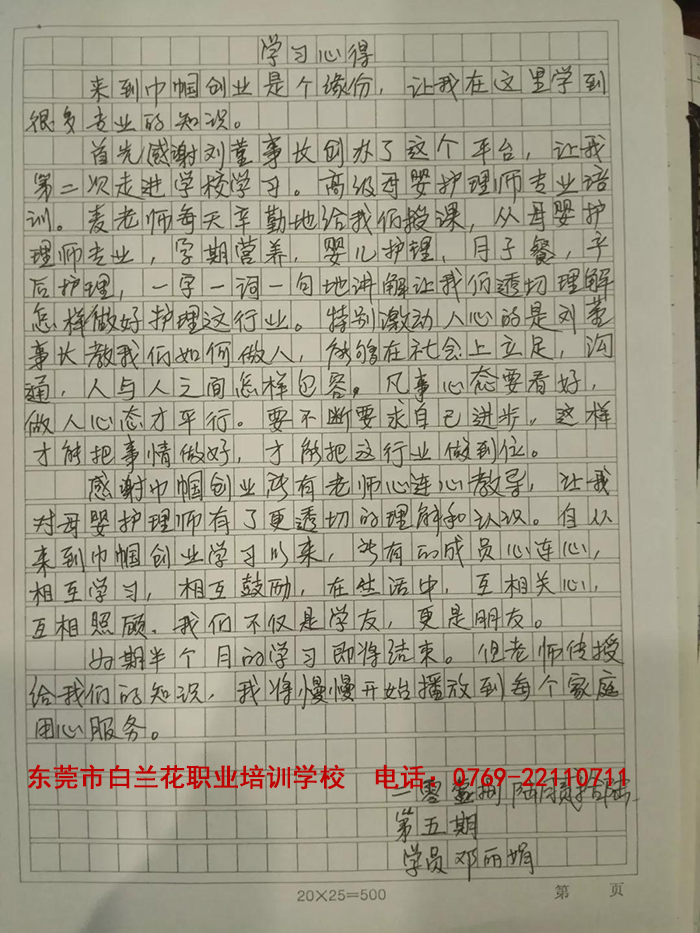 学习心得
来到巾帼创业是个缘份，让我在这里学到
很多专业的知识。
首先感谢刘董事长创办了这个平台，让我
第二次走进学校学习。高级母婴护理师专业培
训。麦老师每天辛勤地给我们授课，从母婴护
理师专业，孕期营养，婴儿护理，月子餐，产
后护理，一字一词一句地讲解让我们透切理解
怎样做好护理这行业。特别激动人心的是刘董
事长教我们如何做人，能够在社会上立足，沟
通，人与人之间怎样包容。凡事心态要看好，
做人心态才平行。要不断要求自己进步，这样
才能把事情做好，才能把这行业做到位。
感谢巾帼创业所有老师心连心教导，让我
对母婴护理师有了更透切的理解和认识。自从
来到巾帼创业学习以来，所有的成员心连心，
相互学习，相互鼓励，在生活中，互相关心，
互相照顾。我们不仅是学友，更是朋友。
为期半个月的学习即将结束。但老师传授
给我们的知识，我将慢慢开始播放到每个家庭
用心服务。
东莞市白兰花职业培训学校 电话：0769-22110711
二零壹捌
第五期
学员邓丽娟
20×25=500 第 页